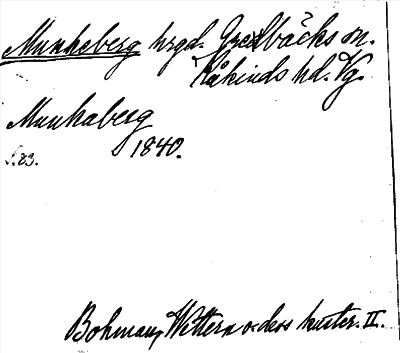 Munkeberg hrgd. Gredbäcks sn.
Kåkinds hd. Vg.
Munkaberg
1840.
s. 83.
Bohman, Wettern o. dess kuster. II.